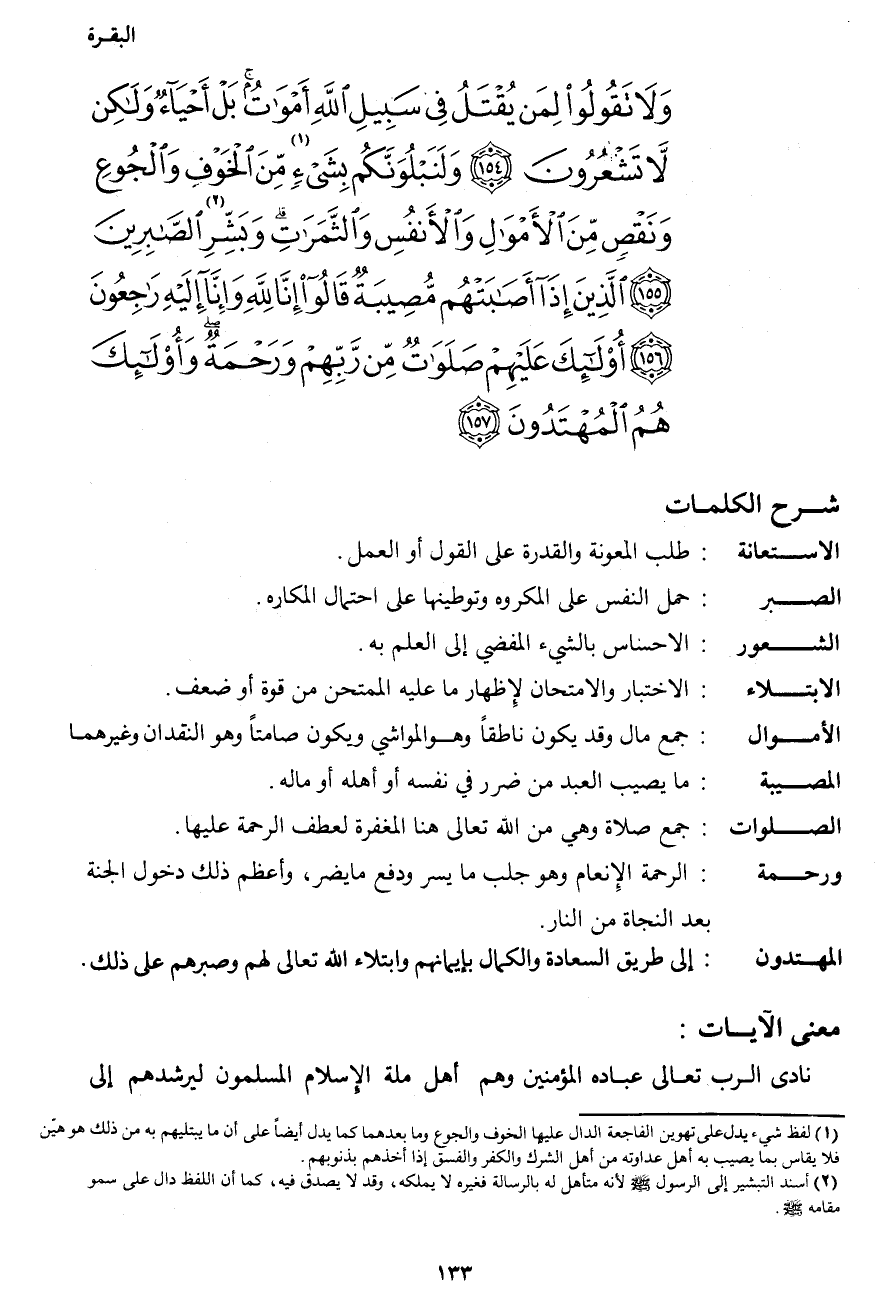 البقرة
وَلَا تَقُولُوا۟ لِمَن يُقْتَلُ فِى سَبِيلِ ٱللَّهِ أَمْوَٰتٌۢ ۚ بَلْ أَحْيَآءٌ وَلَٰكِن
لَّا تَشْعُرُونَ ﴿١٥٤﴾ وَلَنَبْلُوَنَّكُم بِشَىْءٍ (١) مِّنَ ٱلْخَوْفِ وَٱلْجُوعِ
وَنَقْصٍ مِّنَ ٱلْأَمْوَٰلِ وَٱلْأَنفُسِ وَٱلثَّمَرَٰتِ ۗ وَبَشِّرِ (٢) ٱلصَّٰبِرِينَ
﴿١٥٥﴾ ٱلَّذِينَ إِذَآ أَصَٰبَتْهُم مُّصِيبَةٌ قَالُوٓا۟ إِنَّا لِلَّهِ وَإِنَّآ إِلَيْهِ رَٰجِعُونَ
﴿١٥٦﴾ أُو۟لَٰٓئِكَ عَلَيْهِمْ صَلَوَٰتٌ مِّن رَّبِّهِمْ وَرَحْمَةٌ ۖ وَأُو۟لَٰٓئِكَ
هُمُ ٱلْمُهْتَدُونَ ﴿١٥٧﴾
شرح الكلمات
الاستعانة : طلب المعونة والقدرة على القول أو العمل.
الصبر : حمل النفس على المكروه وتوطينها على احتمال المكاره.
الشعور : الاحساس بالشيء المفضي إلى العلم به.
الابتلاء : الاختبار والامتحان لإظهار ما عليه الممتحن من قوة أو ضعف.
الأموال : جمع مال وقد يكون ناطقاً وهو المواشي ويكون صامتاً وهو النقدان وغيرهما
المصيبة : ما يصيب العبد من ضرر في نفسه أو أهله أو ماله.
الصلوات : جمع صلاة وهي من الله تعالى هنا المغفرة لعطف الرحمة عليها.
ورحمة : الرحمة الإنعام وهو جلب ما يسر ودفع مايضر، وأعظم ذلك دخول الجنة
بعد النجاة من النار.
المهتدون : إلى طريق السعادة والكمال بإيمانهم وابتلاء الله تعالى لهم وصبرهم على ذلك.
معنى الآيات :
نادى الرب تعالى عباده المؤمنين وهم أهل ملة الإسلام المسلمون ليرشدهم إلى
(١) لفظ شيء يدل على تهوين الفاجعة الدال عليها الخوف والجوع وما بعدهما كما يدل أيضاً على أن ما يبتليهم به من ذلك هو هيّن
فلا يقاس بما يصيب به أهل عداوته من أهل الشرك والكفر والفسق إذا أخذهم بذنوبهم.
(٢) أسند التبشير إلى الرسول ﷺ لأنه متأهل له بالرسالة فغيره لا يملكه، وقد لا يصدق فيه، كما أن اللفظ دال على سمو
مقامه ﷺ.
١٣٣